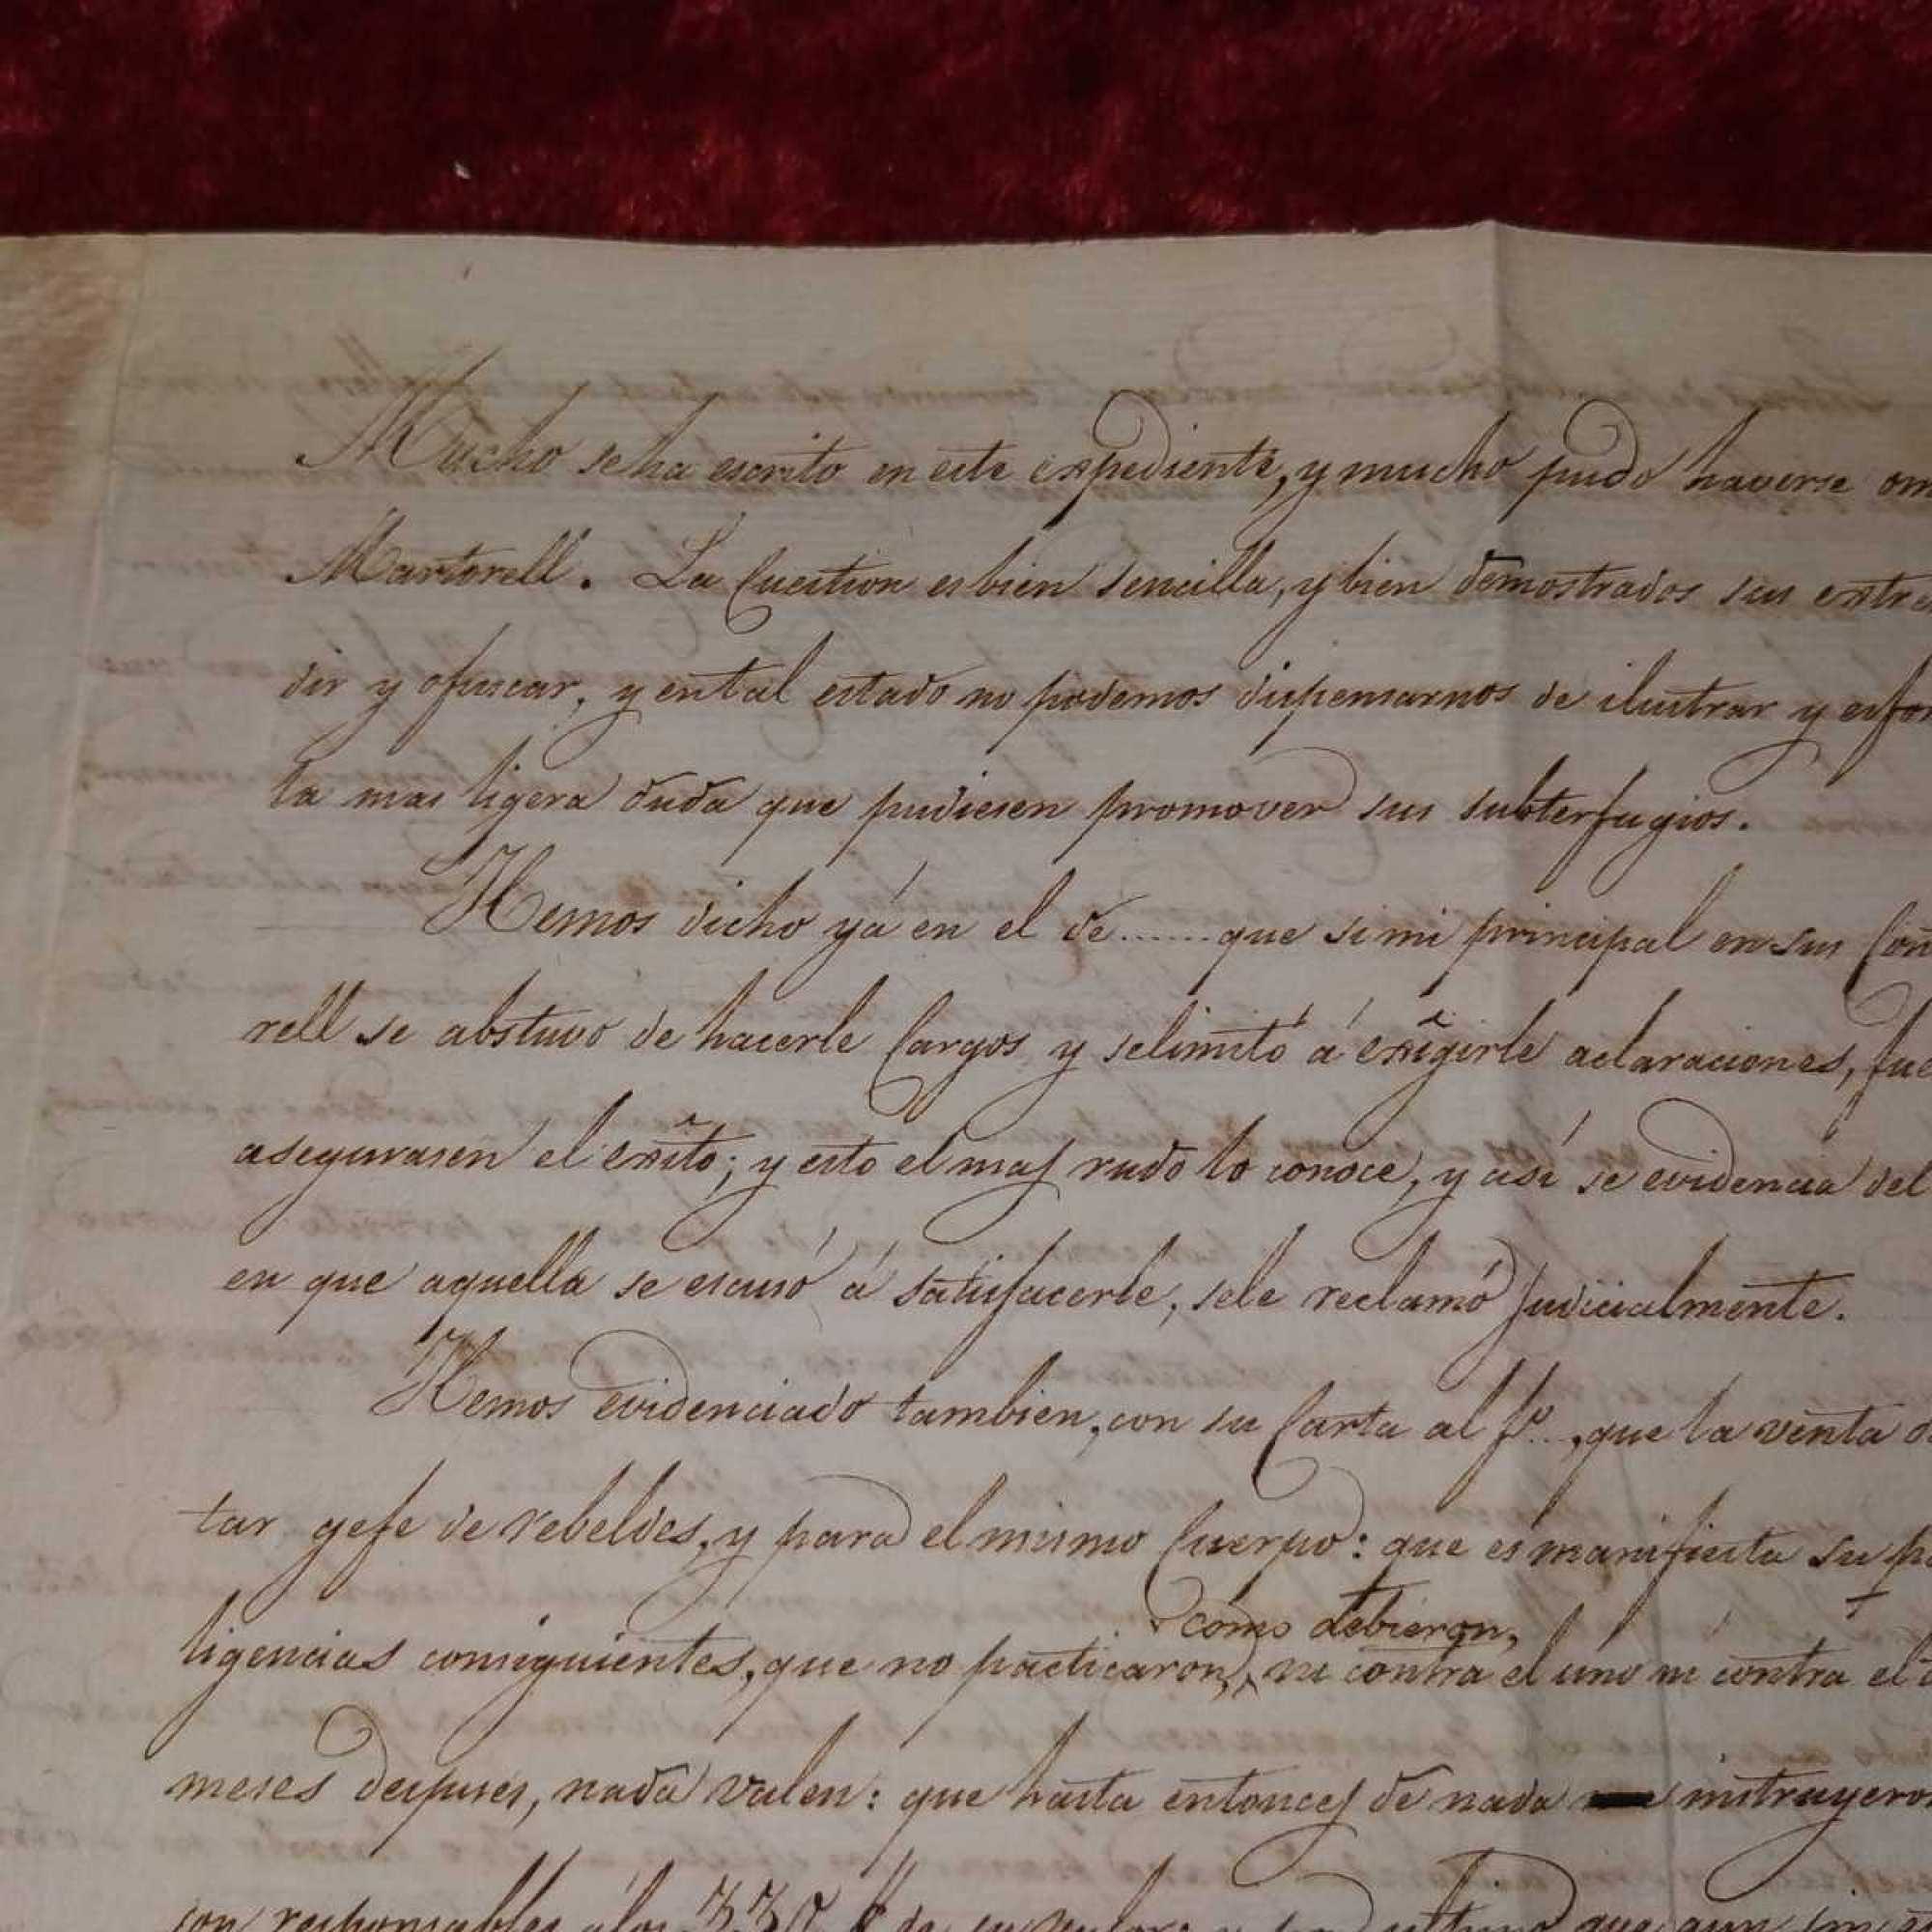 Mucho se ha escrito en este expediente, y mucho pudo haverse om
Martorell. La Cuestion es bien sencilla, y bien demostrados sus extre
dir y ofuscar, y en tal estado no podemos dispensarnos de ilustrar y esfor
la mas ligera duda que pudiesen promover sus subterfugios.
Hemos dicho yá en el de ...... que si mi principal en sus Con
rell se abstuvo de hacerle Cargos y se limitó á exîgirle aclaraciones, fue
asegurasen el exîto; y esto el mas rudo lo conoce, y asi se evidencia del
en que aquella se escusó á satisfacerle, se le reclamó judicialmente.
Hemos evidenciado tambien, con su Carta al fº..., que la venta d
tar gefe de rebeldes, y para el mismo Cuerpo: que es manifiesta su p
como debieron,
ligencias consiguientes, que no practicaron, ni contra el uno ni contra el
meses despues, nada valen: que hasta entonces de nada instruyeron
son responsables á los 330 de su valor: y por ultimo que aun sin